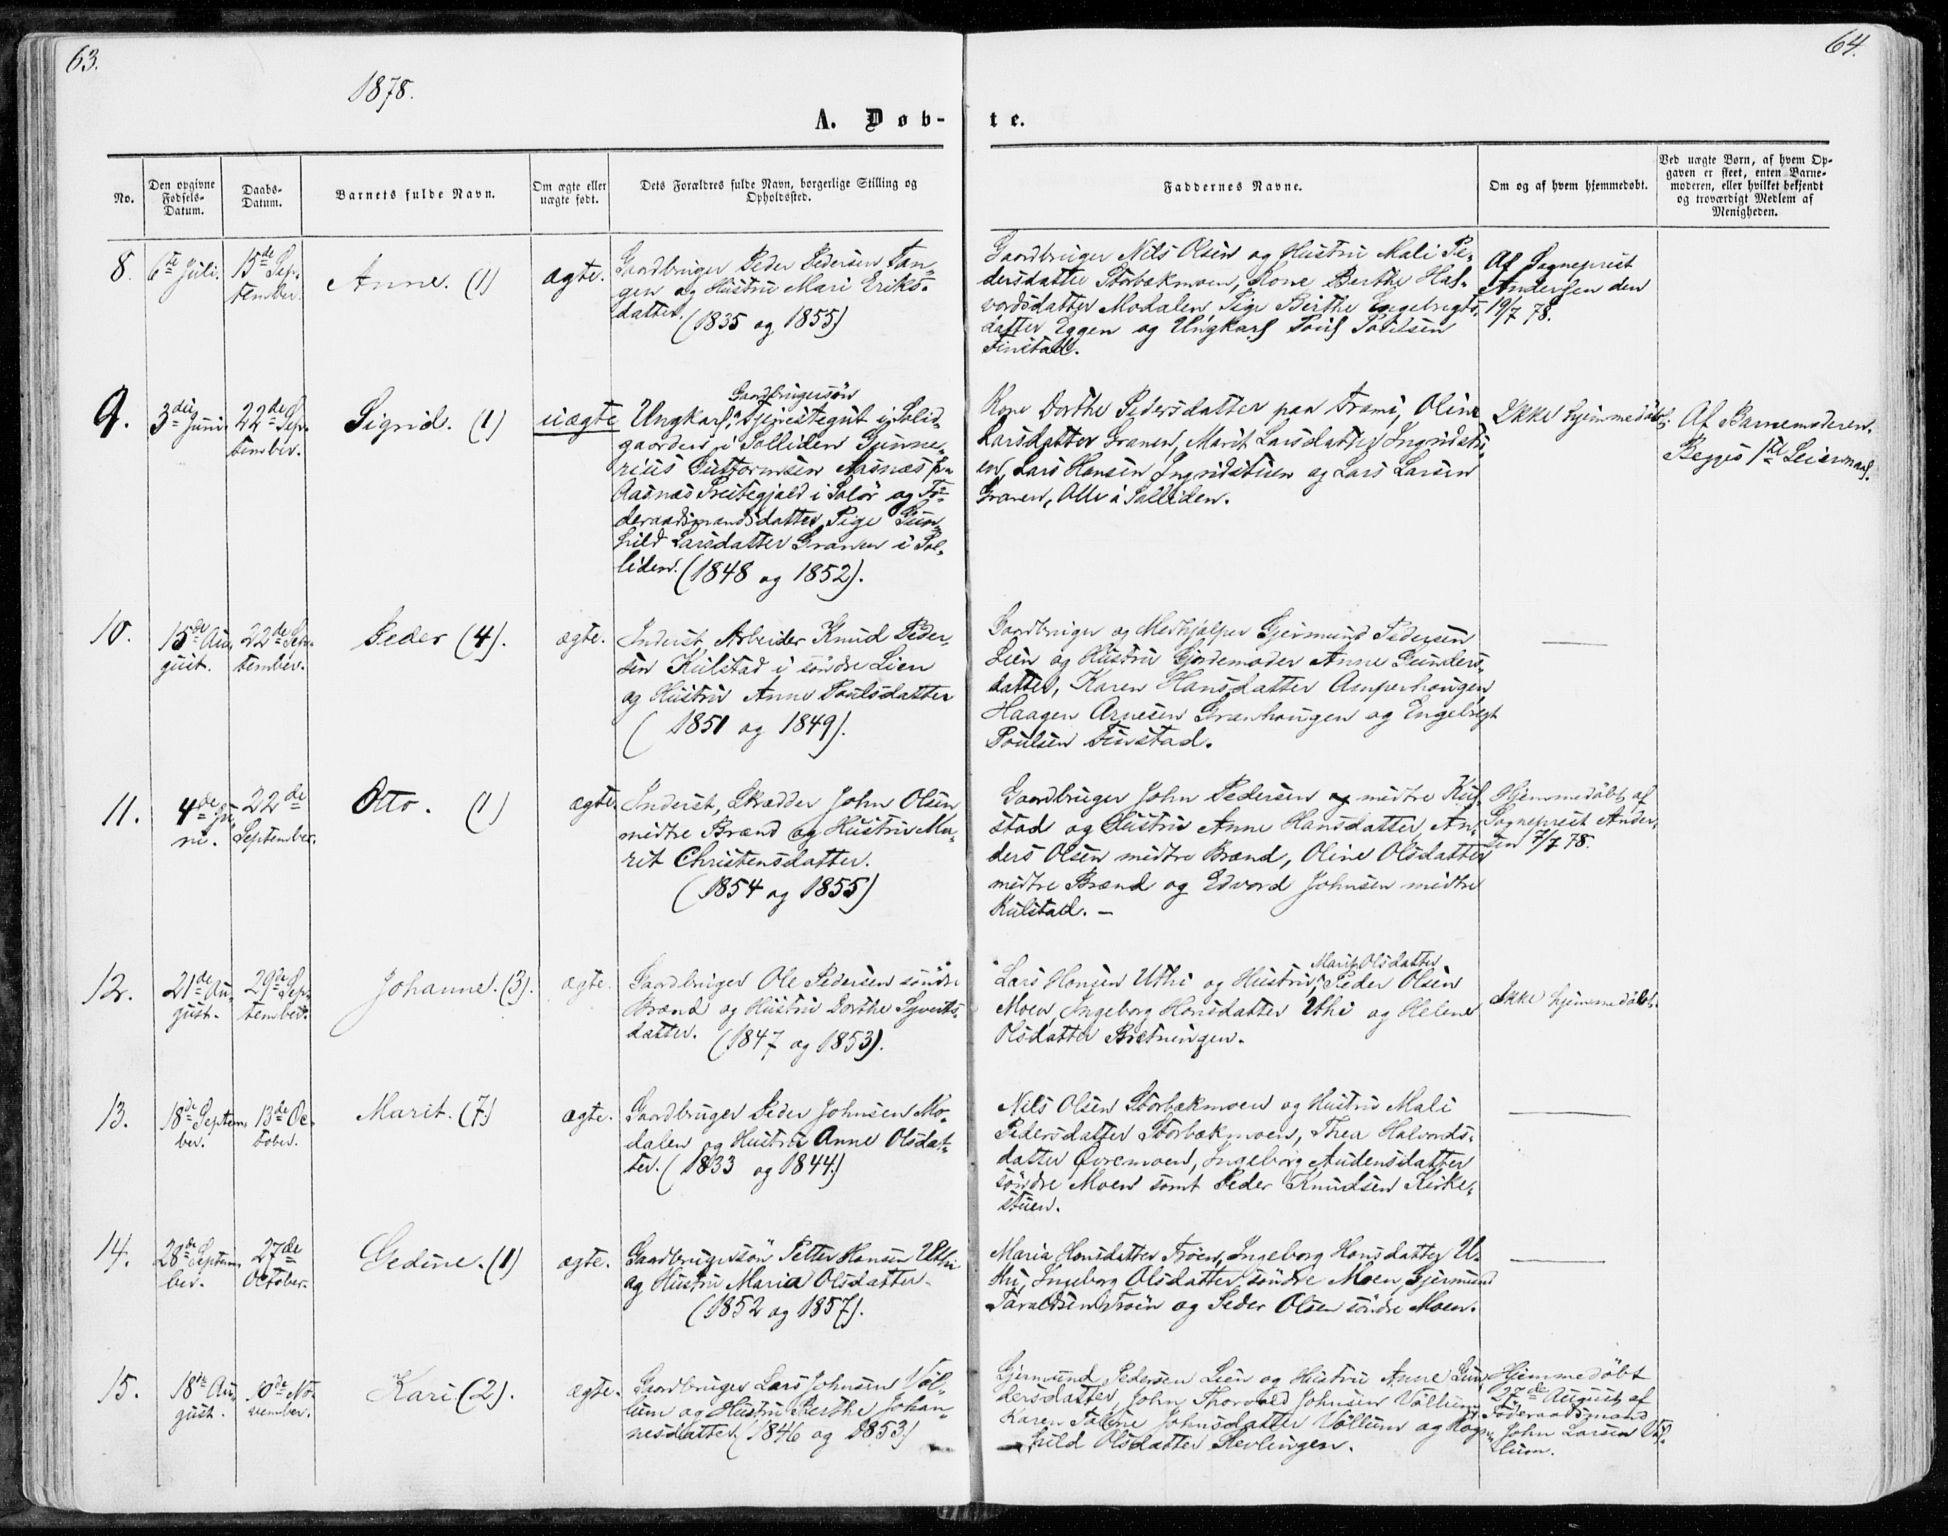 63.
64.
1878.
A. Døb-
te.
No.
Den opgivne
Fødsels-
Datum.
Daabs-
Datum.
Barnets fulde Navn.
Om ægte eller
uægte født.
Dets Forældres fulde Navn, borgerlige Stilling og
Opholdssted.
Faddernes Navne.
Om og af hvem hjemmedøbt.
Ved uægte Børn, af hvem Op-
gaven er skeet, enten Barne-
moderen, eller hvilket bekjendt
og troværdigt Medlem af
Menigheden.
8.
6te Juli.
15de Sep-
tember.
Anne. (1)
ægte.
Gaardbruger Peder Pedersen Tan-
gen og Hustru Mari Eriks-
datter.
(1835 og 1855)
Gaardbruger Nils Olsen og Hustru Mali Pe-
dersdatter Storbækmoen, Kone Berthe Hal-
vordsdatter Modalen, Pige Birthe Engebregts-
datter Eggen og Ungkarl Poul Poulsen
Finstad.
Af Sogneprest
Andersen den
19/7 78.
9.
3die Juni
22de Sep-
tember.
Sigrid. (1)
uægte
Gaardbrugersøn
Ungkarl, Tjenestegut i Solid-
gaarden i Solliden Gunne-
rius Guttormsen Aasnæs fra
Aasnæs Prestegjeld i Solør og Fø-
deraadsmandsdatter Pige Gun-
hild Larsdatter Granen i Sol-
liden. (1848 og 1852).
Kone Dorthe Pedersdatter paa Trami, Oline
Larsdatter Granen, Marit Larsdatter Ingridstu-
en, Lars Hansen Ingridstuen og Lars Larsen
Granen, Alle i Solliden.
Ikke hjemmedøbt.
Af Barnemoderen.
Begges 1ste Leiermaal.
10.
15de Au-
gust.
22de Sep-
tember.
Peder (4).
ægte.
Inderst, Arbeider Knud Peder-
sen Kulstad i søndre Lien
og Hustru Anne Poulsdatter
(1851 og 1849).
Gaardbruger og Medhjælper Gjermund Pedersen
Lien og Hustru Gjordemoder Anne Gunders-
datter, Karen Hansdatter Amperhaugen
Haagen Arnesen Grænhaugen og Engebregt
Poulsen Finstad.
11.
4de Ju-
ni.
22de
September.
Otto. (1)
ægte
Inderst, Skrædder John Olsen
midtre Brænd og Hustru Ma-
rit Christensdatter.
(1854 og 1855)
Gaardbruger John Pedersen midtre Kul-
stad og Hustru Anne Hansdatter, An-
ders Olsen midtre Brænd, Oline Olsdatter
midtre Brænd og Edvard Johnsen midtre
Kulstad. —
Hjemmedøbt af
Sogneprest Ander-
sen 7/7 78.
12.
21de Au-
gust.
29de Sep-
tember.
Johanne. (3).
ægte.
Gaardbruger Ole Pedersen søndre
Brænd og Hustru Dorthe Syverts-
datter. (1847 og 1853).
Marit Olsdatter
Lars Hansen Uthi og Hustru, Peder Olsen
Moen, Ingeborg Hansdatter Uthi og Helene
Olsdatter Bretningen.
Ikke hjemmedøbt.
13.
18de Septem-
ber.
13de Oc-
tober.
Marit. (7)
ægte.
Gaardbruger Peder Johnsen Mo-
dalen og Hustru Anne Olsdat-
ter. (1833 og 1844)
Nils Olsen Storbækmoen og Hustru Mali
Pedersdatter Storbækmoen, Thea Halvords-
datter Øvremoen, Ingeborg Audensdatter
søndre Moen samt Peder Knudsen Kirke-
stuen.
14.
28de Septem-
ber.
27de
October.
Gedine. (1)
ægte.
Gaardbrugersøn Petter Hansen Uthi
og Hustru Maria Olsdatter
(1852 og 1857).
Maria Hansdatter Trøen, Ingeborg Hansdatter U-
thi, Ingeborg Olsdatter søndre Moen, Gjermund
Taraldsen Trøen og Peder Olsen søndre Moen.
15.
18de Au-
gust.
10de No-
vember.
Kari (2).
ægte.
Gaardbruger Lars Johnsen Vol-
lum og Hustru Berthe Johan-
nesdatter (1846 og 1853)
Gjermund Pedersen Lien og Hustru Anne Gun-
dersdatter, John Thorvald Johnsen Vollum
Karen Johnsdatter Vollum og Ragn-
hild Olsdatter Revlingen.
Hjemmedøbt
27de August af
Føderaadsmand
John Larsen Vol-
lum.